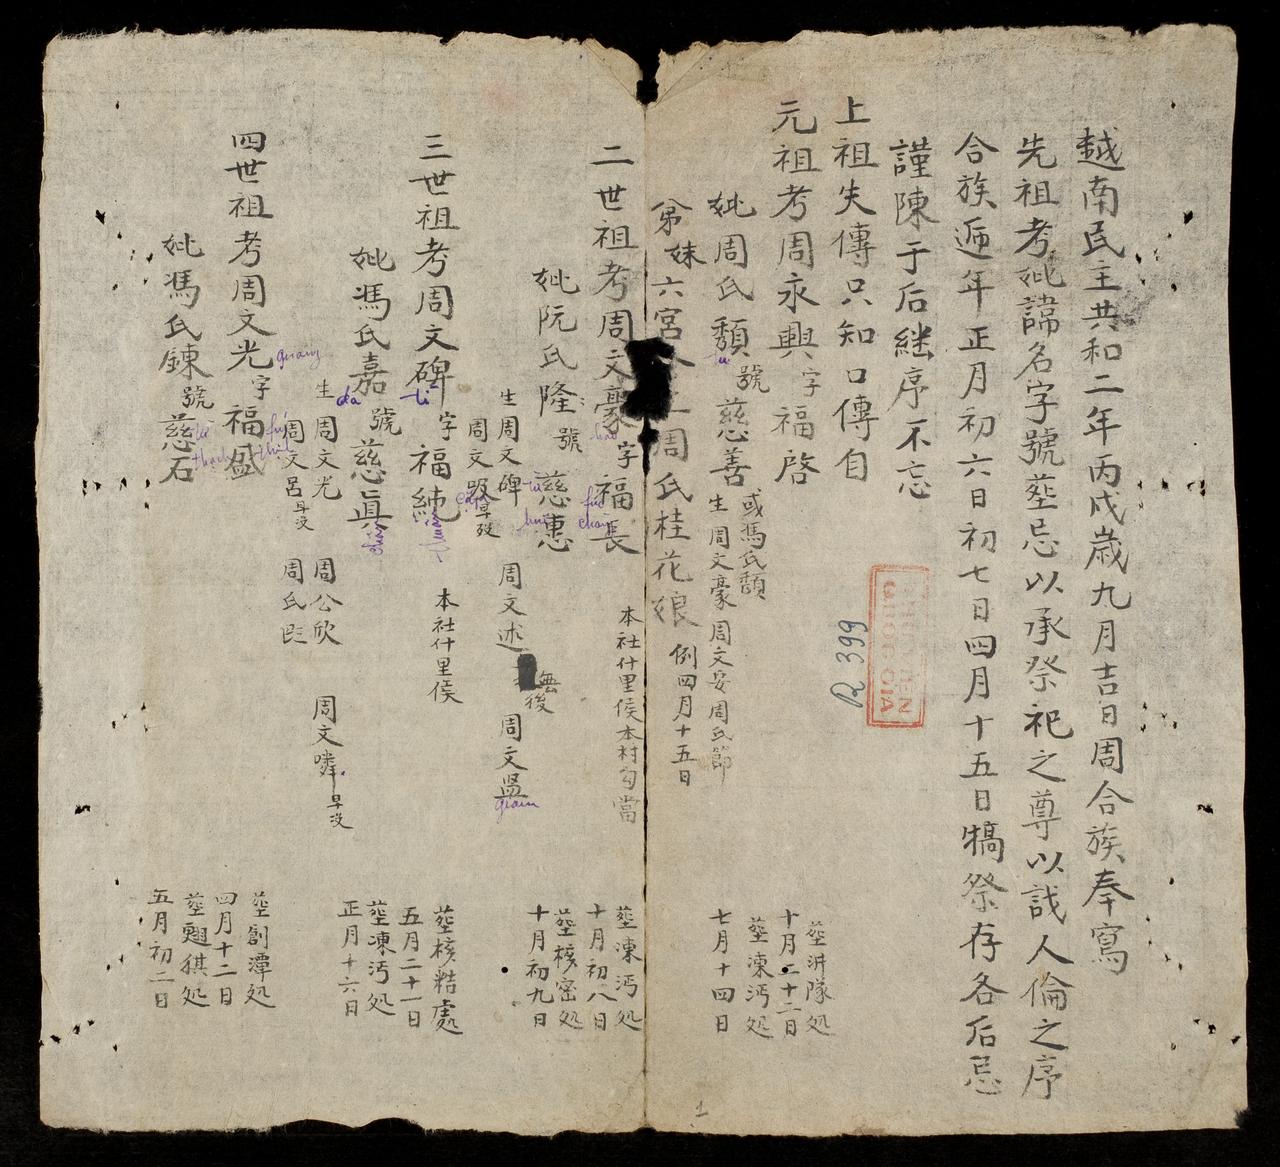 越南民主共和二年丙戌歲九月吉日周合族奉寫
先祖考妣諱名字號塟忌以承祭祀之尊以誠人倫之序
合族遞年正月初六日初七日四月十五日犒祭存各后忌
謹陳于后継序不忘
上祖失傳只知口傳自
元祖考周永興字福啓
塟洴隊処
十月二十二日
妣周氏頹號慈善
tu
或馮氏頹
生周文豪周文安周氏節
塟凍沔処
七月十四日
弟妹六宮
周氏桂花娘
例四月十五日
R 399
二世祖考周文豪字福長
hào
本社什里侯本村勾當
塟凍沔処
十月初八日
妣阮氏隆號慈惠
塟核密処
十月初九日
生周文碑
周文述
無後
周文
giám
周文
早殁
三世祖考周文碑字福純
本社什里侯
塟核粓處
五月二十一日
妣馮氏嘉號慈眞
塟凍沔処
正月十六日
生周文光
周公欣
周文嶙
早没
周文呂
早没
周氏
四世祖考周文光字福盛
quang
塟創潭処
四月十二日
妣馮氏鍊號慈石
từ
thạch
塟翹猉処
五月初二日
1